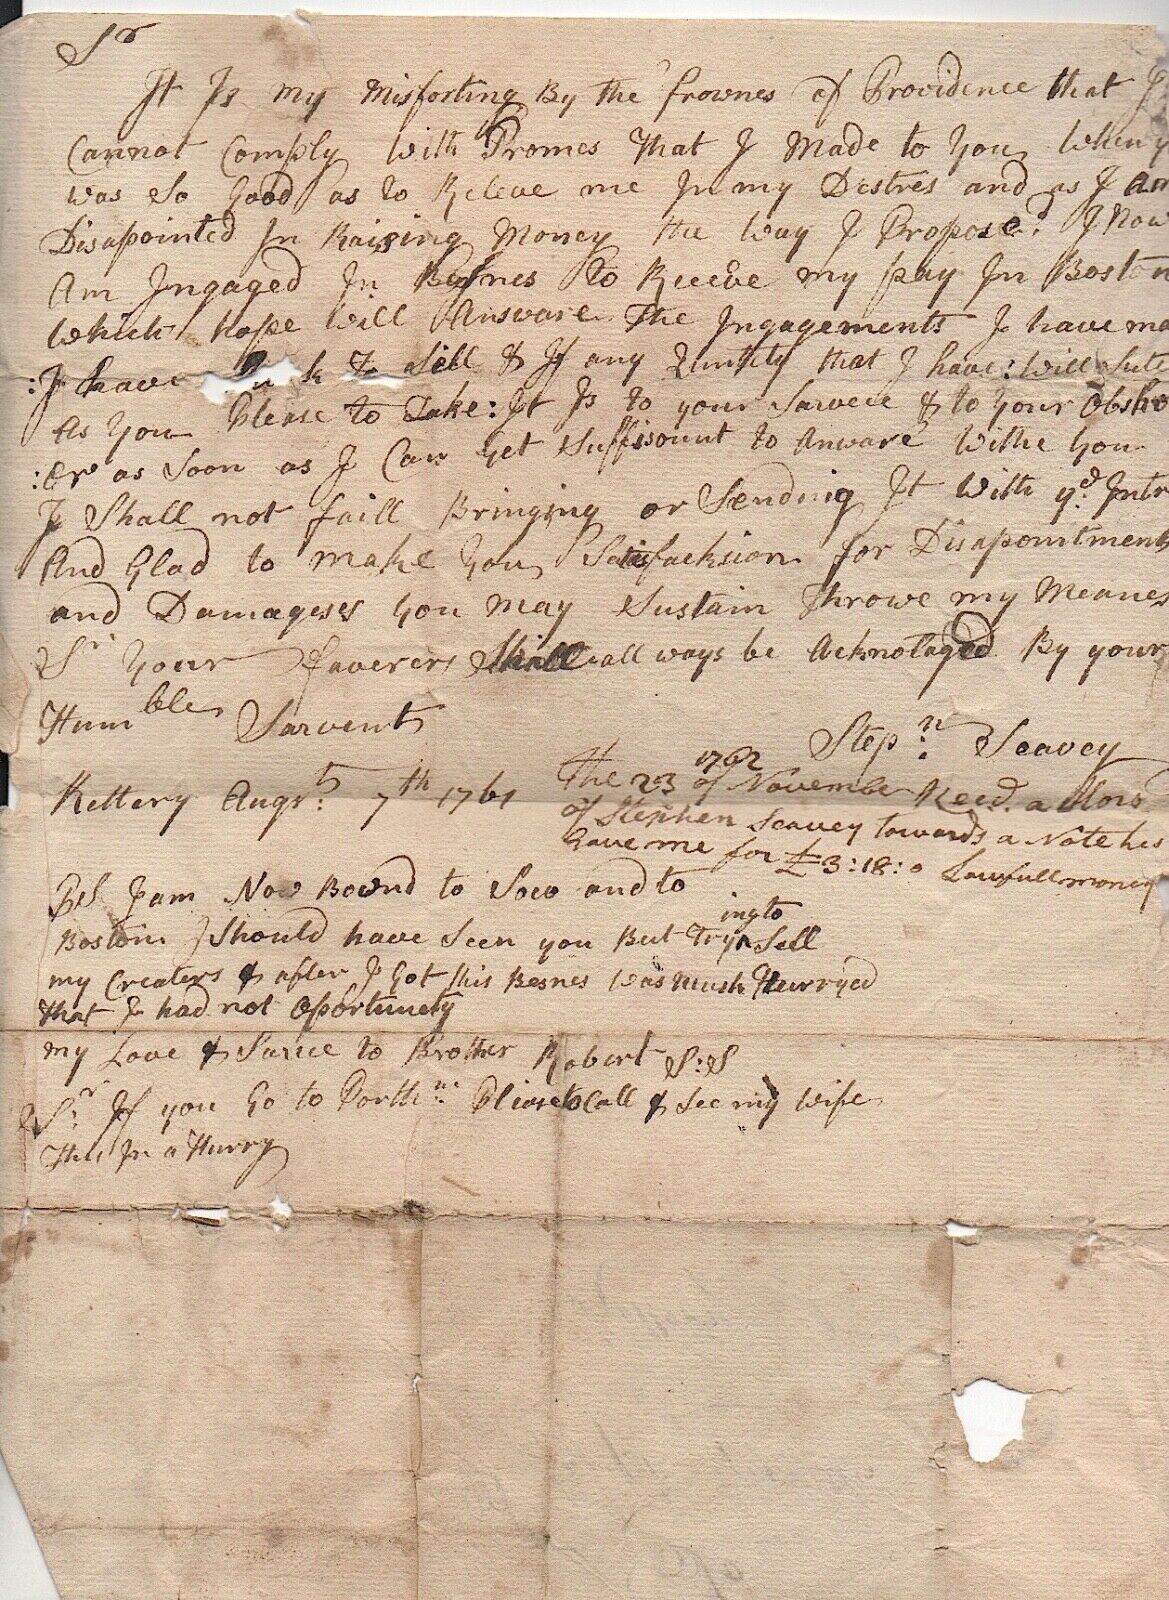 Sr
It Is my Misforting By the frownes of Providence that I
Cannot Comply With Promes That I Made to you When y
was So Good as to Releve me In my Distres and as I Am
Disapointed In Raising Money the way I Propose.d I Now
Am Ingaged In Busnes to Receve my pay In Boston
which hope will Answare The Ingagements I have ma
:I have to Sell & If any Quntity that I have: will Sute
As you Please to Take: It Is to your Sarvece & to your
:Or as Soon as I Can Get Suffissount to Anware Withe you
I Shall not faill Bringing or Sending It With yd. Intr
And Glad to make you Satisfacksion for Disapointments
and Damageses you may Sustain Throwe my Meanes
Sr your faverers Shall all ways be Acknolaged By your
Humble Sarvent Stepn: Seavey
Kettery Augst: 7th 1761
The 23 of November 1762 Recd. a
of Stephen Seavey towards a Note he
Gave me for £3:18:0 Lawfull money
I am Now Bownd to Soco and to
Boston I Should have Seen you But Trying to Sell
my Creaters & after I Got this Besnes Was Mush Hurryed
that I had not Oportunety
my Love & Sarvice to Brother Robert S:S
Sr: If you Go to Portsm: Please to Call & See my wife
This In a Hurry